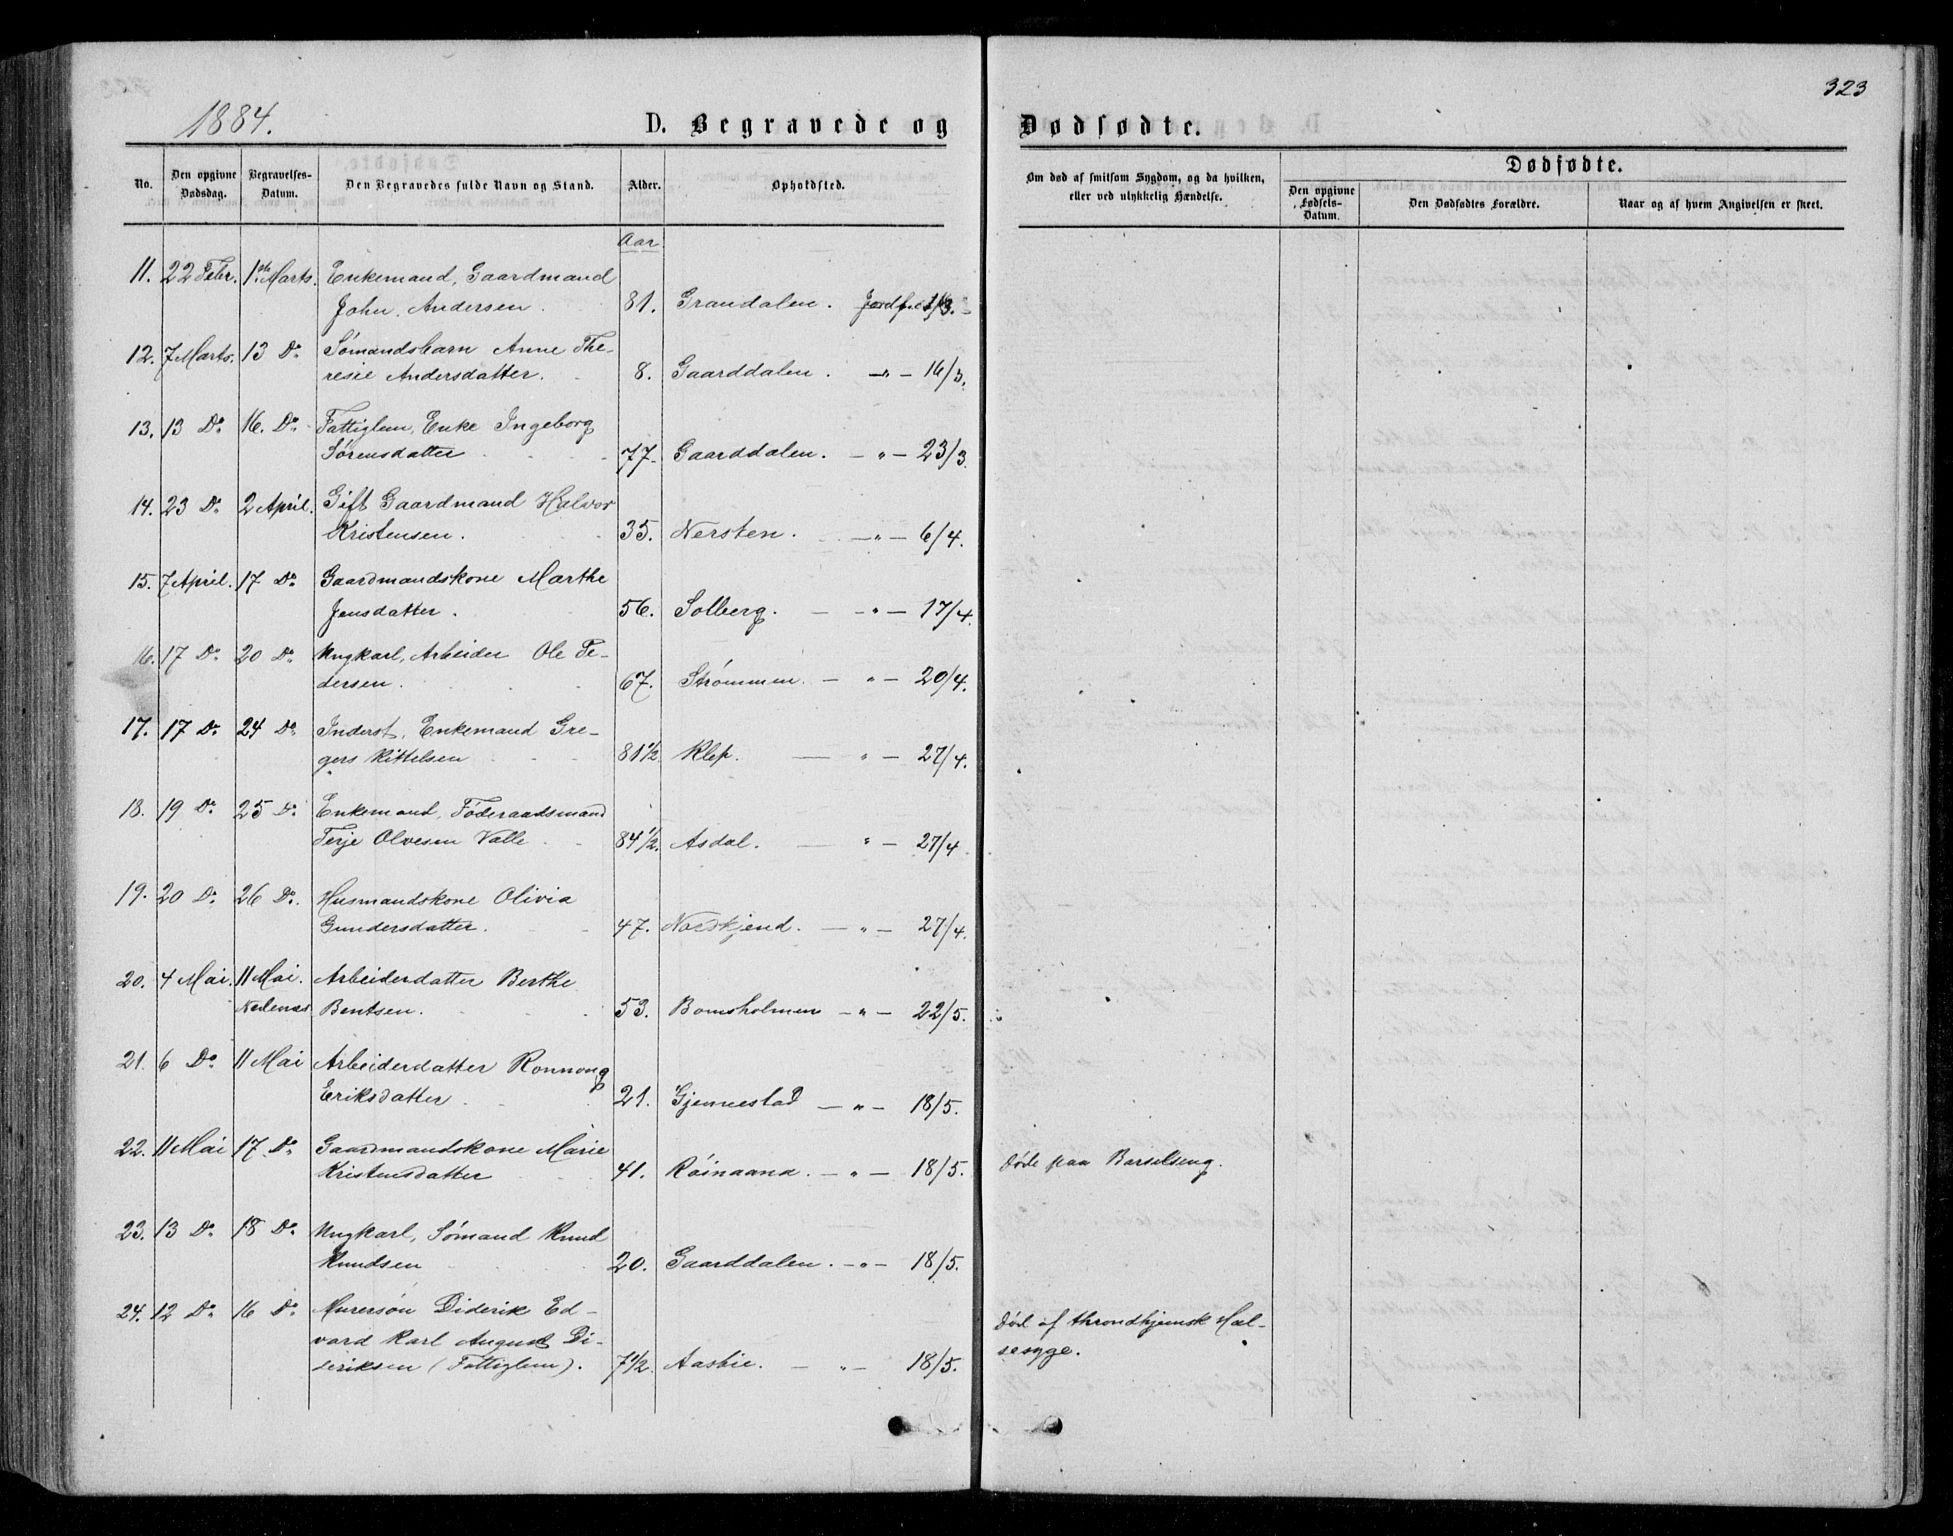 323
1884.
D. Begravede og Dødfødte.
No.
Den opgivne Dødsdag.
Begravelses-Datum.
Den Begravedes fulde Navn og Stand.
Alder.
Opholdsted.
Om død af smitsom Sygdom, og da hvilken,
eller ved ulykkelig Hændelse.
Dødfødte.
Den opgivne Fødsels-Datum.
Den Dødfødtes Forældre.
Naar og af hvem Angivelsen er skeet.
Aar
11. 22 Febr. 1ste Marts. Enkemand, Gaardmand
John Andersen. 81. Grandalen. Jordf. 1/3.
12. 7 Marts. 13 Do Sømandsbarn Anne The-
resie Andersdatter. 8. Gaarddalen. —"— 16/3.
13. 13 Do 16. Do Fattiglem, Enke Ingeborg
Sørensdatter 77. Gaarddalen. —"— 23/3.
14. 23 Do 2 April. Gift Gaardmand Halvor
Kristensen. 35. Nersten. —"— 6/4.
15. 7 April. 17 Do Gaardmandskone Marthe
Jensdatter. 56. Solberg. —"— 17/4.
16. 17 Do 20 Do Ungkarl, Arbeider Ole Pe-
dersen. 67. Strømmen. —"— 20/4.
17. 17 Do 24 Do Inderst, Enkemand Gre-
gers Kittelsen 81 1/2 Klep. —"— 27/4.
18. 19 Do 25 Do Enkemand, Føderaadsmand
Terje Olvesen Valle 84 1/2. Asdal. —"— 27/4
19. 20 Do 26 Do. Husmandskone Olivia
Gundersdatter. 47. Nordkjend. —"— 27/4.
20. 4 Mai. 11 Mai. Arbeiderdatter Berthe
Nedenæs Bentsen. 53. Bomsholmen —"— 22/5.
21. 6 Do 11 Mai Arbeiderdatter Ronnoug
Eriksdatter 21. Gjennestad —"— 18/5.
22. 11 Mai 17 Do Gaardmandskone Marie
Kristensdatter 41. Røinaana. —"— 18/5. Døde paa Barselseng.
23. 13 Do 18 Do Ungkarl, Sømand Knud
Knudsen 20. Gaarddalen. —"— 18/5.
24. 12 Do 16 Do Murersøn Diderik Ed-
vard Karl August Di-
deriksen (Fattiglem). 7 1/2. Aasbie. —"— 18/5.
Død af throndhjemsk Hal-
sesyge.